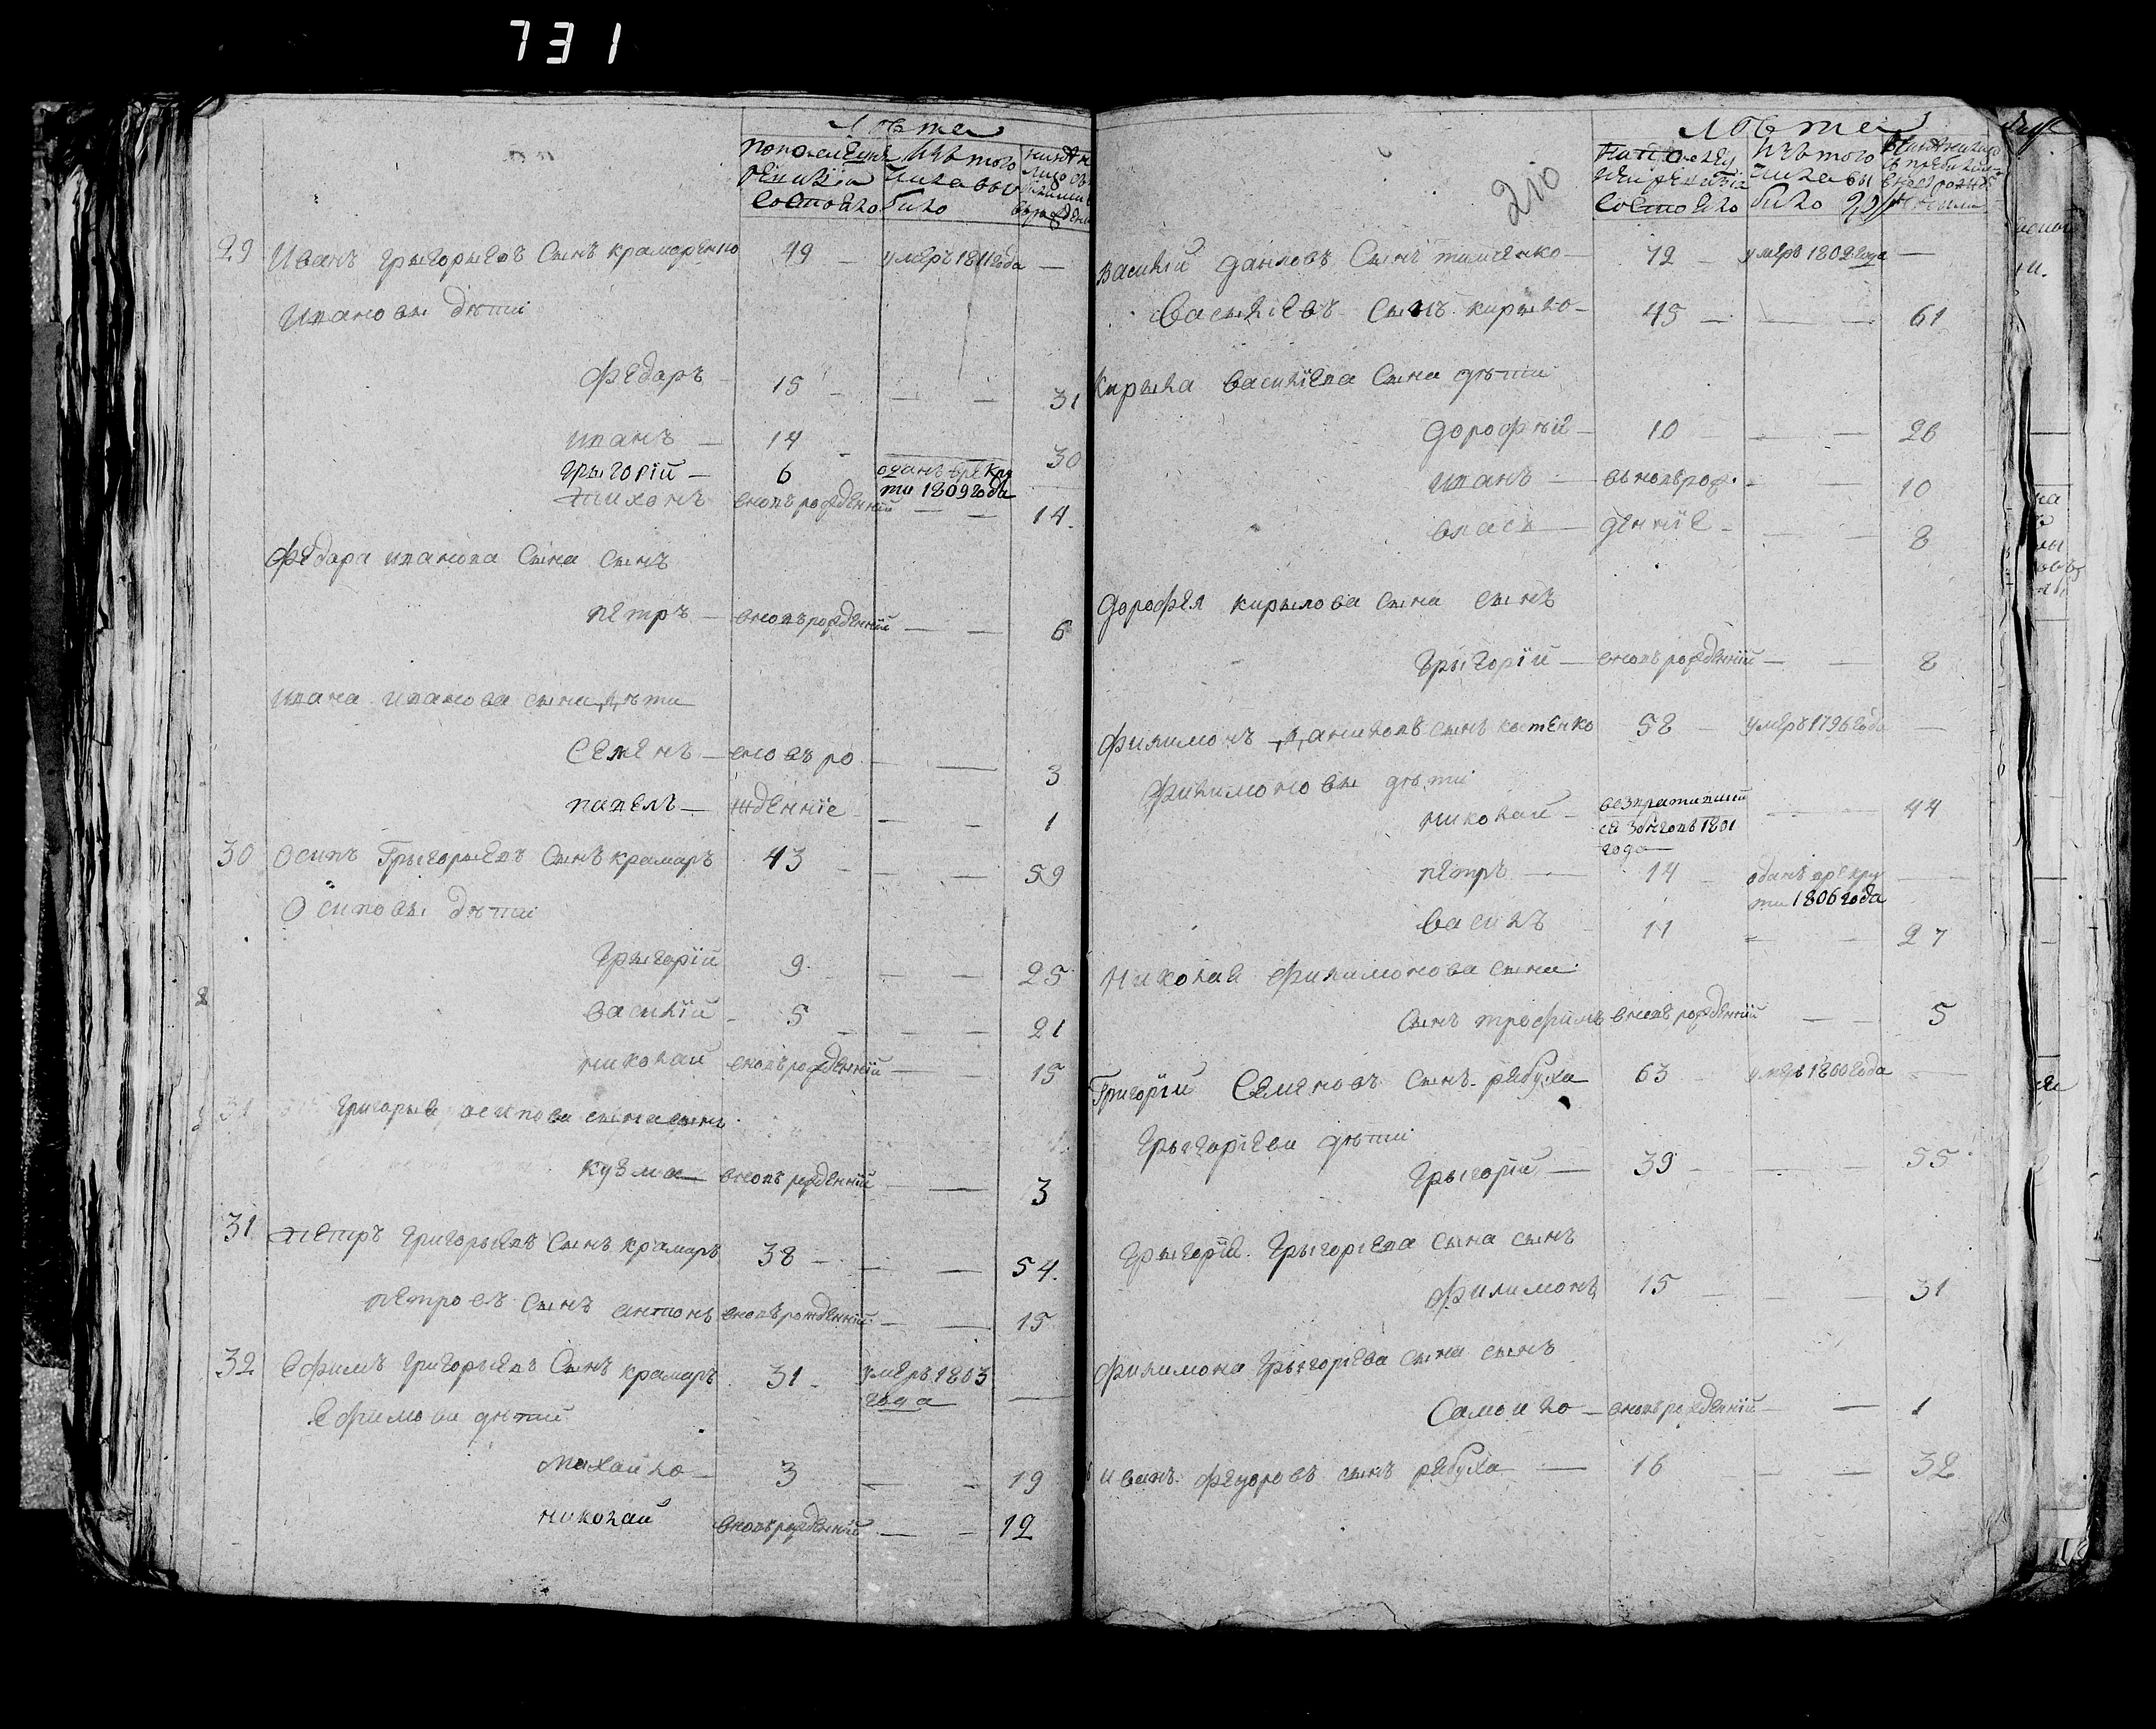 731
Лѣта
По последней ревизіи состояло
изъ того числа выбыло
29 Иванъ Грыгорьевъ Сынъ крамаренко 49 — умеръ 1811 года —
Ивановы дѣти
Федаръ 15 — — 31
иванъ — 14 — 30
Грыгорій — 6 оданъ врекру
ти 1809 года
тихонъ вновърожденній — — 14.
Федара иванова Сына Сынъ
петръ — вновърожденній — — 6
ивана иванова сына дѣти
Семенъ — вновъ ро — 3
павелъ — жденніе — — 1
30 Осипъ Грыгорьевъ Сынъ крамаръ 43 — — 59
Осиповы дѣти
Грыгорій 9 — — 25
василій — 5 — — 21
николай вновърожденній — — 15
31 Григорья осипова сына сынъ
кузма вновърожденній — 3
31 петръ Григорьевъ Сынъ крамаръ 38 — — 54.
петровъ Сынъ антонъ вновърожденній — — 15
32 Ефимъ Григорьевъ Сынъ крамаръ 31 — умеръ 1803
года —
Ефимовы дѣти
михайло — 3 — — 19
николай вновърожденній — — 12
Лѣта
210
изъ того числа выбыло
василій даниловъ Сынъ тимченко — 72 — умеръ 1802 года —
Васильевъ Сынъ кирыло — 45 — — 61
Кирыла василіева Сына дѣти
дорофѣй — 10 — — 26
иванъ — вновърож. — 10
власъ — денніе — — 8
дорофея кирылова сына сынъ
Грыгорій — вновърожденній — — 8
Филимонъ даниловъ сынъ костенко 58 — умеръ 1796 года —
Филимоновы дѣти
николай — возвратившій
ся збѣговъ 1801
года — — 44
петръ — 14 — оданъ врекру —
ти 1806 года
василъ 11 — — 27
Николая Филимонова сына
Сынъ трофимъ вновърожденній — — 5
Григорій Семеновъ сынъ рябуха 63 — умеръ 1800 года —
ГрыгорІевы дѣти
Грыгорій — 39 — — 55
Грыгорія Грыгоріева сына сынъ
Филимонъ 15 — — 31
Филимона Грыгоріева сына сынъ
Самойло — вновърожденній — — 1
иванъ Федоровъ сынъ рябуха — 16 — — 32